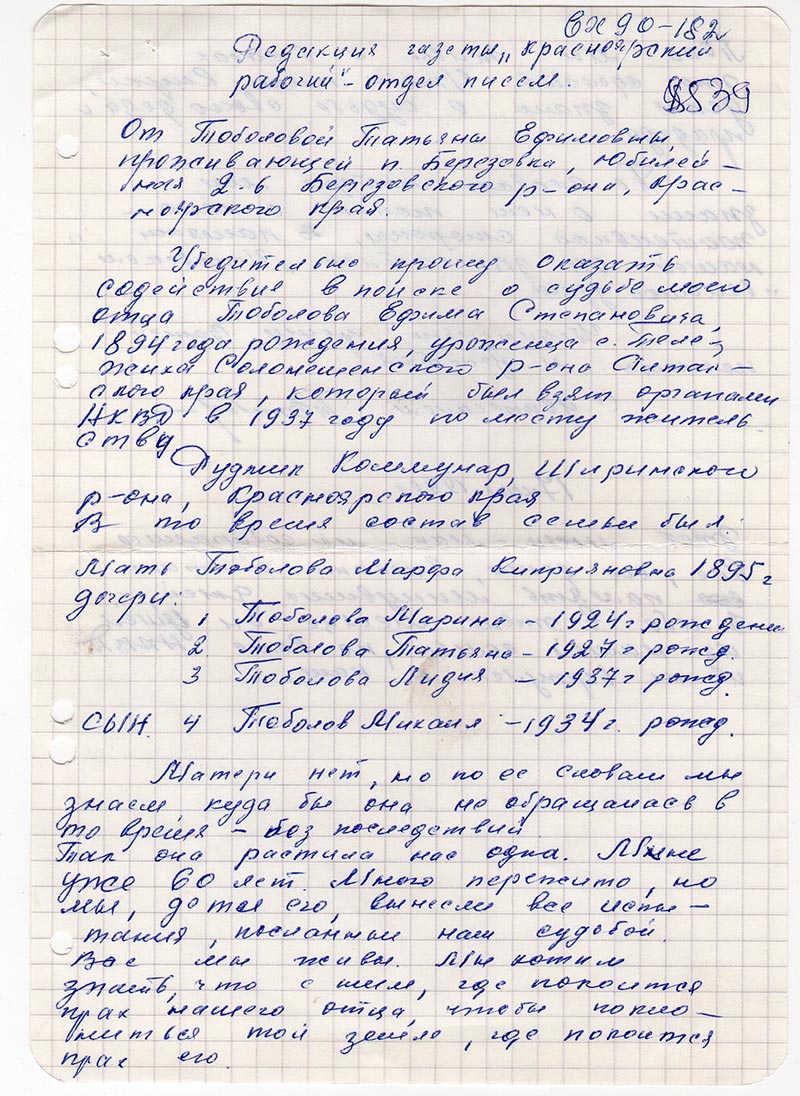 вх 90-182
Редакция газеты „Красноярский
рабочий" - отдел писем.
8539
От Тоболовой Татьяны Ефимовны,
проживающей п. Березовка, Юбилей-
ная 2-6 Березовского р-она, Крас-
ноярского края.
Убедительно прошу оказать
содействие в поиске о судьбе моего
отца Тоболова Ефима Степановича,
1894 года рождения, уроженца с. Теле-
жиха Солонешенского р-она Алтай-
ского края, который был взят органами
НКВД в 1937 году по месту житель-
ству
Рудник Коммунар, Ширинского
р-она, Красноярского края
В то время состав семьи был:
Мать Тоболова Марфа Киприяновна 1895 г
дочери:
1 Тоболова Марина - 1924 г рождени
2 Тоболова Татьяна - 1927 г рожд.
3 Тоболова Лидия - 1937 г рожд.
сын. 4 Тоболов Михаил - 1934 г. рожд.
Матери нет, но по ее словам мы
знаем куда бы она не обращалась в
то время - без последствий
Так она растила нас одна. Мне
уже 60 лет. Много пережито, но
мы, дети его, вынесли все испы-
тания, посланные нам судьбой.
Все мы живы. Мы хотим
знать, что с ним, где покоится
прах нашего отца, чтобы покло-
ниться той земле, где покоится
прах его.